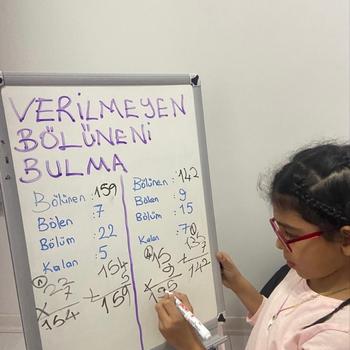 VERİLMEYEN
BÖLÜNENİ
BULMA
Bölünen : 159
Bölen : 7
Bölüm : 22
Kalan : 5
22
x 7
154
154
+ 5
159
Bölünen : 142
Bölen : 9
Bölüm : 15
Kalan : 7
15
x 9
135
135
+ 7
142